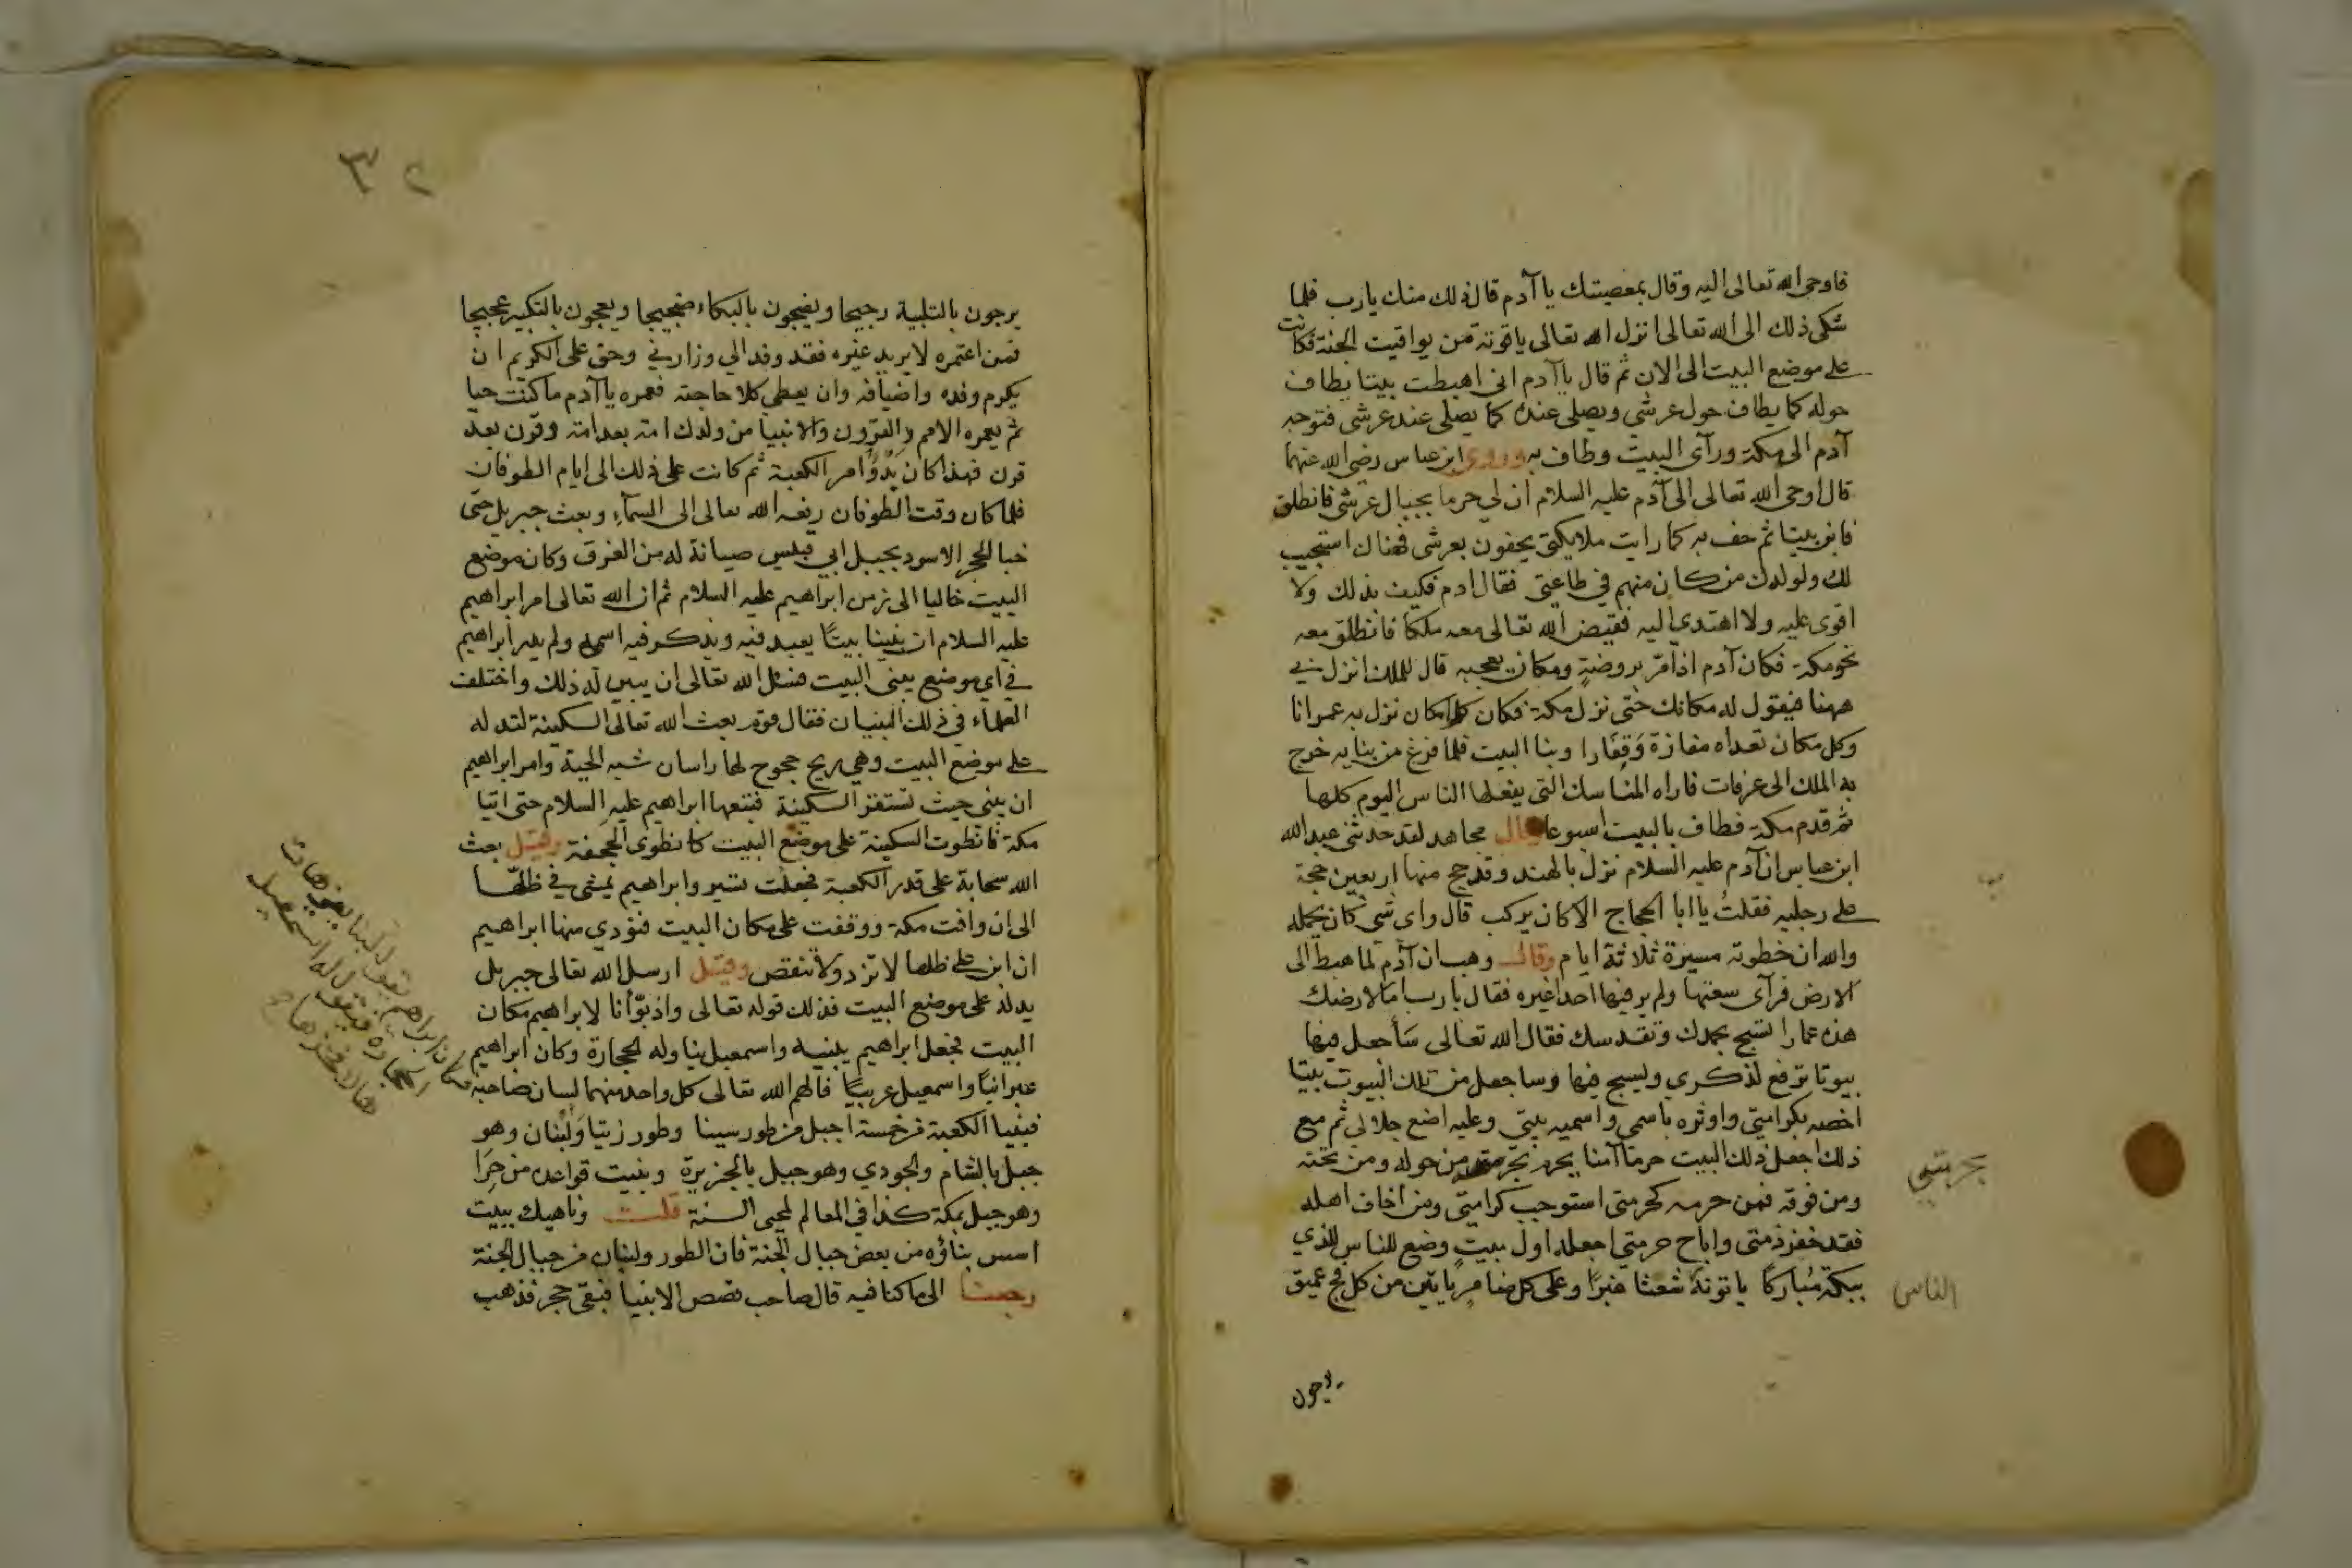 فاوحى الله تعالى اليه وقال بمعصيتك يا آدم قال ذلك منك يا رب فلما
شكى ذلك الى الله تعالى انزل الله تعالى ياقوتة من يواقيت الجنة فكانت
على موضع البيت الى الان ثم قال يا آدم انى اهبطت بيتا يطاف
حوله كما يطاف حول عرشي ويصلى عنده كما يصلى عند عرشى فتوجه
آدم الى مكة ورآى البيت وطاف به وروى ابن عباس رضى الله عنهما
قال اوحى الله تعالى الى آدم عليه السلام ان لي حرما بحيال عرشى فانطلق
فابن بيتا ثم حف به كما رايت ملايكتى يحفون بعرشى فهناك استجيب
لك ولولدك من كان منهم في طاعتى فقال ادم فكيف بذلك ولا
اقوى عليه ولا اهتدي اليه فقيض الله تعالى معه ملكا فانطلق معه
نحو مكة فكان آدم اذا مرّ بروضةٍ ومكان يعجبه قال للملك انزل بي
ههنا فيقول له مكانك حتى نزل مكة فكان كل مكان نزل به عمرانا
وكل مكان تعداه مفازة وَقِفَارا وبنا البيت فلما فرغ من بنايه خرج
به الملك الى عرفات فاراه المناسك التى يفعلها الناس اليوم كلها
ثم قدم مكة فطاف بالبيت اسبوعا قال مجاهد لقد حدثنى عبد الله
ابن عباس ان آدم عليه السلام نزل بالهند وقد حج منها اربعين حجة
على رجليه فقلتُ يا ابا الحجاج الا كان يركب قال واى شى كان يحمله
والله ان خطوته مسيرة ثلاثة ايام وقال وهب ان آدم لما هبط الى
الارض فرآى سعتها ولم ير فيها احدا غيره فقال يا رب اما لارضك
هذه عمارا تسبح بحمدك وتقدسك فقال الله تعالى سَأجعل فيها
بيوتا ترفع لذكري ويسبح فيها وساجعل من تلك البيوت بيتا
اخصه بكرامتي واوثره باسمى واسميه بيتى وعليه اضع جلالي ثم مع
ذلك اجعل ذلك البيت حرما آمنا يحرم من حوله ومن تحته
ومن فوقه فمن حرمه كحرمتى استوجب كرامتى ومن اخاف اهله
فقد خفر ذمتى واباح حرمتي اجعله اول بيتٍ وضع للناس للذي
ببكة مُباركًا ياتونهُ شعثا غبرًا وعلى كل ضامرٍ ياتين من كل فج عميق
الناس
يرجون بالتلبية رجيجا ويضجون بالبكاء ضجيجا ويعجون بالتكبير عجيجا
فمن اعتمره لا يريد غيره فقد وفد الي وزارني وحق على الكريم ان
يكرم وفده واضيافه وان يعطى كلا حاجته فعمره يا آدم ما كنت حيا
ثم يعمره الامم والقرون والانبيا من ولدك امة بعد امة وقرن بعد
قرن فهذا كان بدوُّ امر الكعبة ثم كانت على ذلك الى ايام الطوفان
فلما كان وقت الطوفان رفعه الله تعالى الى السمآء وبعث جبريل حتى
خبا الحجر الاسود بجبل ابي قبيس صيانة له من الغرق وكان موضع
البيت خاليا الى زمن ابراهيم عليه السلام ثم ان الله تعالى امر ابراهيم
عليه السلام ان يبنينا بيتًا يعبد فيه ويذكر فيه اسمه ولم يدر ابراهيم
في اي موضع يبنى البيت فسئل الله تعالى ان يبين له ذلك واختلف
العلماء في ذلك البنيان فقال قوم بعث الله تعالى السكينة لتدله
على موضع البيت وهي ريح خجوج لها راسان شبه الحية وامر ابراهيم
ان يبني حيث تستقر السكينة فتبعها ابراهيم عليه السلام حتى اتيا
مكة فانطوت السكينة على موضع البيت كما تطوى الحجفة وقيل بعث
الله سحابة على قدر الكعبة فجعلت تسير وابراهيم يمشى في ظلّها
الى ان وافت مكة ووقفت على مكان البيت فنودي منها ابراهيم
ان ابن على ظلها لا تزد ولا تنقص وقيل ارسل الله تعالى جبريل
يدله على موضع البيت فذلك قوله تعالى واذ بوّأنا لابراهيم مكان
البيت فجعل ابراهيم يبنيه واسمعيل يناوله الحجارة وكان ابراهيم
عبرانيًا واسمعيل عربيًا فالهم الله تعالى كل واحد منهما لسان صاحبه
فبنيا الكعبة من خمسة اجبل من طور سينا وطور زيتا وَلُبنان وهو
جبل بالشام والجودي وهو جبل بالجزيرة وبنيت قواعده من حِرَا
وهو جبل بمكة كذا في المعالم لمحيى السنة قلت وناهيك ببيت
اسس بناؤه من بعض جبال الجنة فان الطور ولبنان من جبال الجنة
رجعنا الى ما كنا فيه قال صاحب قصص الانبيا فبقى حجر فذهب